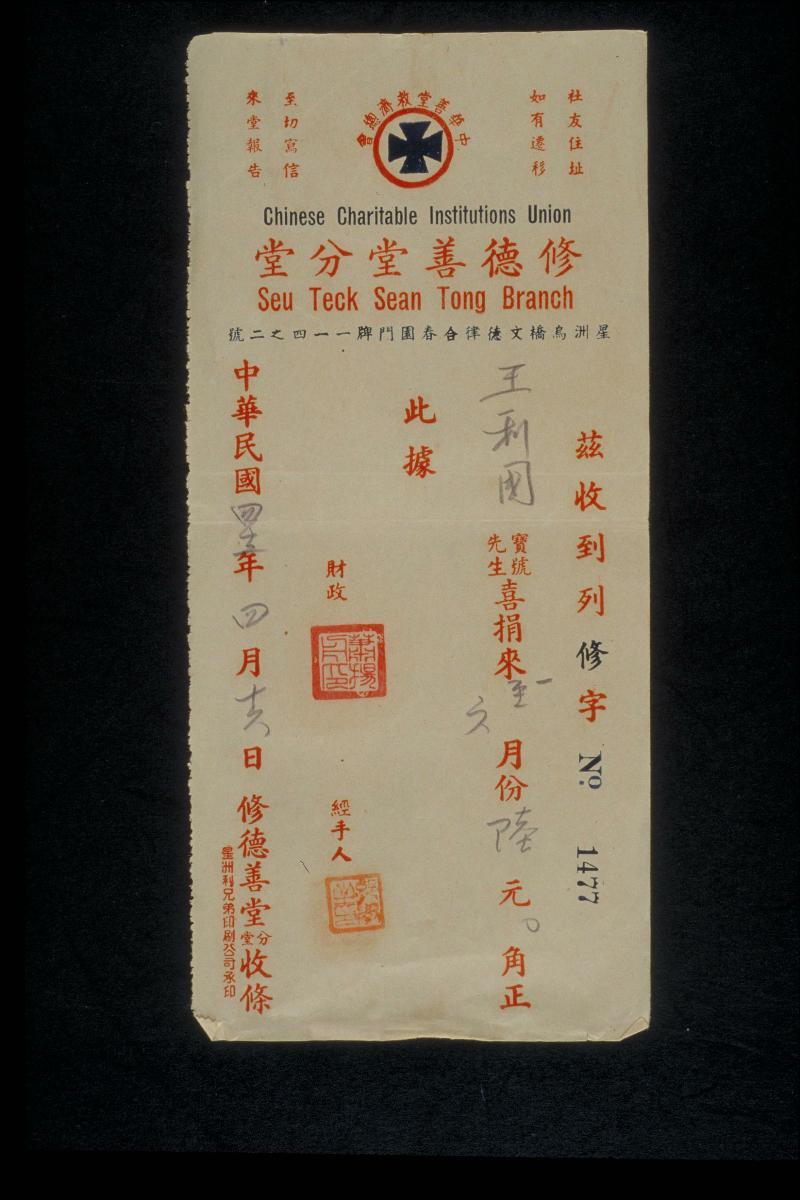 社友住址
如有遷移
中華善堂救濟總會
至切寫信
來堂報告
Chinese Charitable Institutions Union
修德善堂分堂
Seu Teck Sean Tong Branch
星洲烏橋文德律合春園門牌一一四之二號
茲收到列修字 No. 1477
王利國 寶號先生喜捐來一至六月份陸元0角正
此據
財政
經手人
中華民國四年四月十六日修德善堂分堂收條
星洲利兄弟印刷公司承印